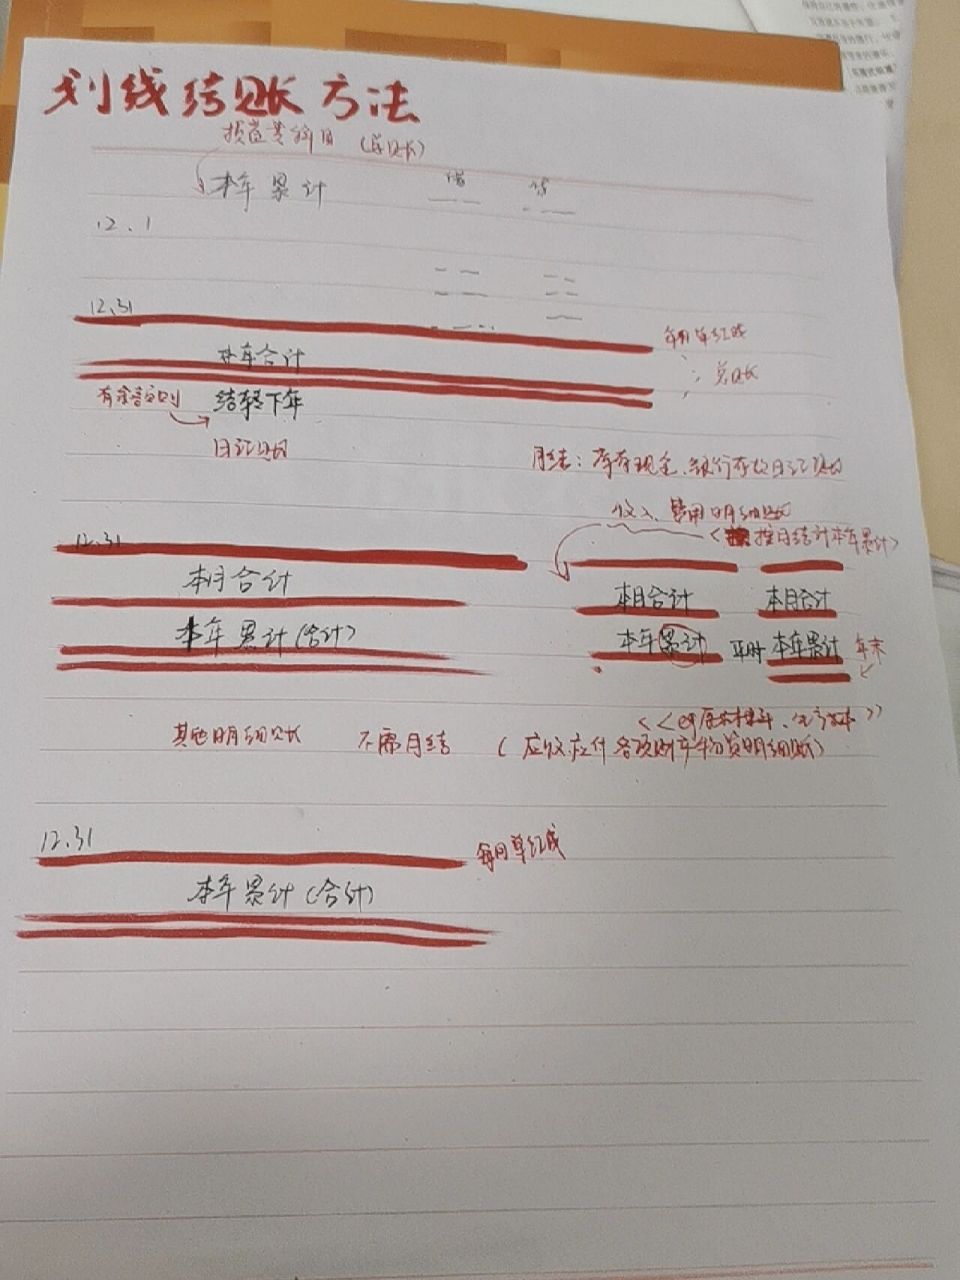 划线结账方法
损益类科目 (总账)
本年累计 借 贷
12.1
12.31
每月单红线
本年合计
总账
有余额则 结转下年
日记账
月结：库存现金、银行存款日记账
收入、费用明细账
按月结计本年累计>
12.31
本月合计
本月合计 本月合计
本年累计(合计)
本年累计 平时 本年累计 年末
其他明细账 不需月结 (应收应付各项财产物资明细账)
12.31
每月单红线
本年累计(合计)